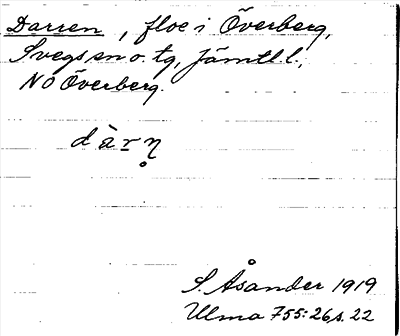 Darren, floe i Överberg,
Svegs sn o. tg, Jämtl. l.,
NO Överberg.
dàrn̥
S. Åsander 1919
Ulma 755:26 s. 22